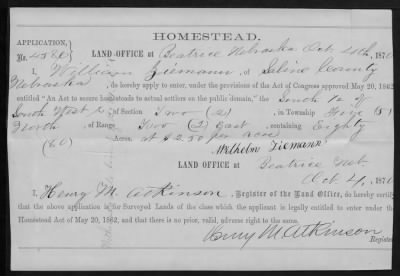 HOMESTEAD.
APPLICATION,
No. 4586
LAND OFFICE at Beatrice Nebraska Oct 4th, 1870
I, William Ziemann, of Saline County
Nebraska, do hereby apply to enter, under the provisions of the Act of Congress approved May 20, 1862,
entitled "An Act to secure homesteads to actual settlers on the public domain," the South 1/2 of
South West of Section Two (2) in Township Five (5)
North, of Range Two (2) East, containing Eighty
(80) Acres. at $2.50 per acre
Wilhelm Ziemann
LAND OFFICE at Beatrice Neb
Oct 4, 1870
I, Henry M. Atkinson, Register of the Land Office, do hereby certify
that the above application is for Surveyed Lands of the class which the applicant is legally entitled to enter under the
Homestead Act of May 20, 1862, and that there is no prior, valid, adverse right to the same.
Henry M. Atkinson
Register